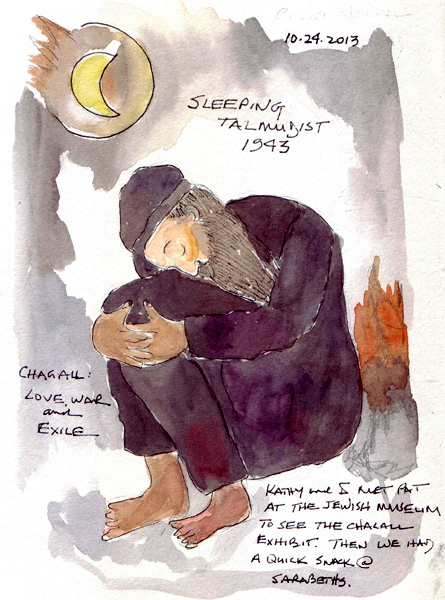 10.24.2013
SLEEPING
TALMUDIST
1943
CHAGALL:
LOVE, WAR
and
EXILE
KATHY and I MET PAT
AT THE JEWISH MUSEUM
TO SEE THE CHAGALL
EXHIBIT. THEN WE HAD
A QUICK SNACK @
SARABETHS.